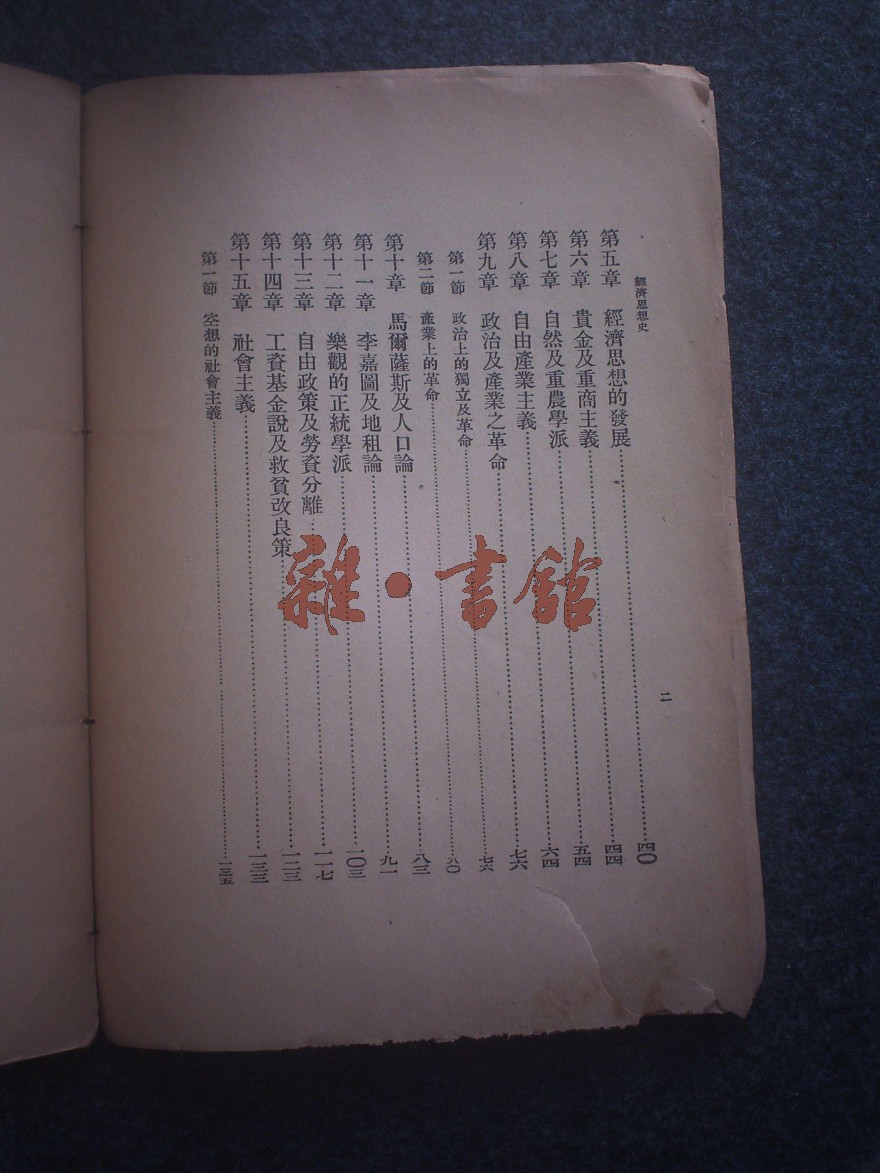 經濟思想史
二
第五章 經濟思想的發展……四〇
第六章 貴金及重商主義……四四
第七章 自然及重農學派……五四
第八章 自由產業主義……六四
第九章 政治及產業之革命……七六
第一節 政治上的獨立及革命……七六
第二節 產業上的革命……八〇
第十章 馬爾薩斯及人口論……八三
第十一章 李嘉圖及地租論……九一
第十二章 樂觀的正統學派……一〇三
第十三章 自由政策及勞資分離……一一七
第十四章 工資基金說及救貧改良策……一二三
第十五章 社會主義……一三三
第一節 空想的社會主義……一三五
雜·書館